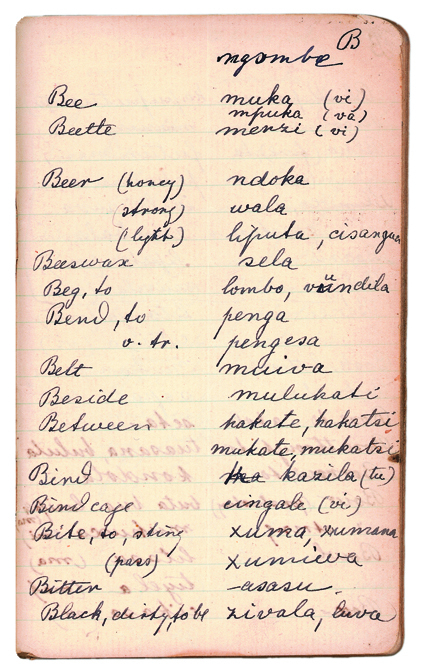 B
ngombe
Bee muka (vi)
mpuka (va)
Beetle menzi (vi)
Beer (honey) ndoka
(strong) wala
(light) liputa, cisangua
Beeswax sela
Beg, to lombo, vündila
Bend, to penga
v. tr. pengesa
Belt muiva
Beside mulukati
Between hakate, hakatsi
mukate, mukatsi
Bird kazila (tu)
Bird cage cingale (vi)
Bite, to sting xuma, xumana
(pass) xumiwa
Bitter -asasu.
Black, dirty, to be zivala, luva